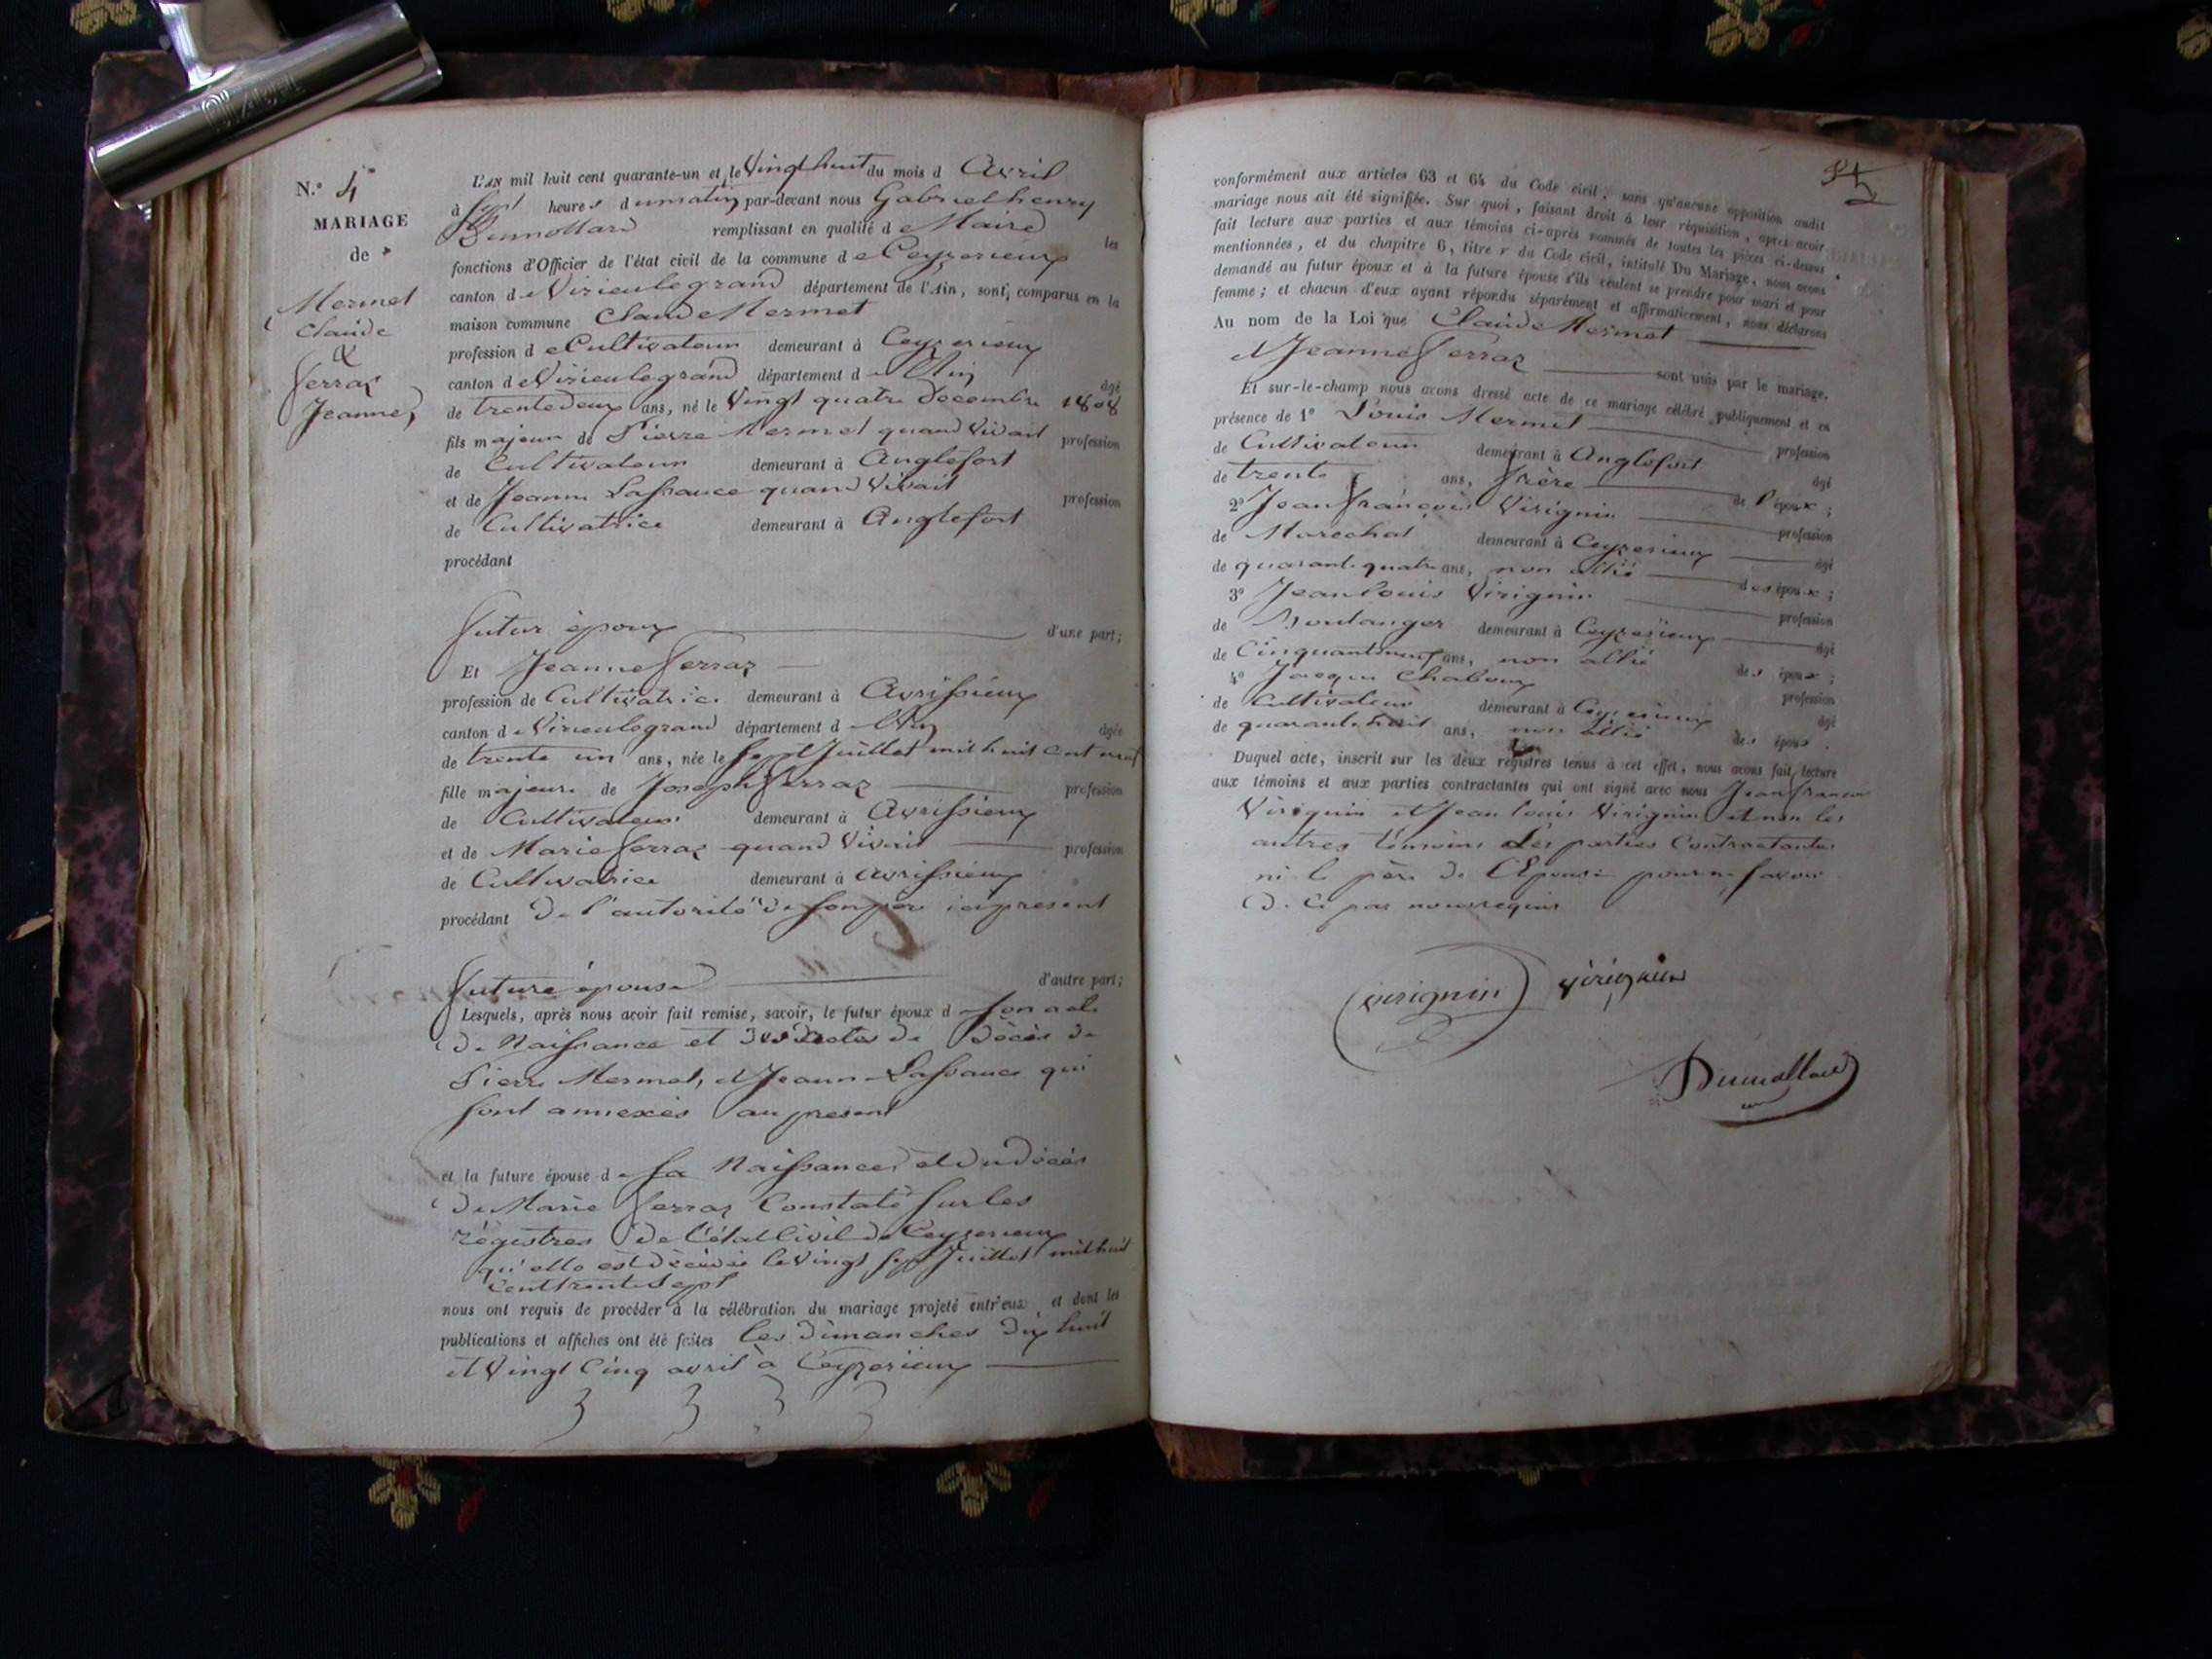 N.° 4
MARIAGE
de
Mermet
Claude
&
ferraz
Jeanne
L'AN mil huit cent quarante-un et le Vingt huit du mois d Avril
à sept heures du matin par-devant nous Gabriel henry
Dumollard remplissant en qualité de Maire les
fonctions d'Officier de l'état civil de la commune de Ceyzerieux
canton de Virieulegrand département de l'Ain, sont comparus en la
maison commune Claude Mermet
profession de Cultivateur demeurant à Ceyzerieux
canton de Virieulegrand département de l'Ain âgé
de trente deux ans, né le Vingt quatre decembre 1808
fils majeur de Pierre Mermet quand Vivait profession
de Cultivateur demeurant à Anglefort
et de Jeanne Lassauce quand Vivait profession
de Cultivatrice demeurant à Anglefort
procédant
futur époux d'une part;
Et Jeanne ferraz
profession de Cultivatrice demeurant à Avrissieux
canton de Virieulegrand département de l'Ain âgée
de trente un ans, née le sept Juillet mil huit cent neuf
fille majeure de Joseph ferraz profession
de Cultivateur demeurant à Avrissieux
et de Marie ferraz quand Vivait profession
de Cultivatrice demeurant à Avrissieux
procédant De l'autorité de son père ici présent
future épouse d'autre part;
Lesquels, après nous avoir fait remise, savoir, le futur époux de son acte
De Naissance et des actes de Décès de
Pierre Mermet, et Jeanne Lassauce qui
sont annexés au present
et la future épouse de sa Naissance et du décès
De Marie ferraz Constaté sur les
régistres De l'état Civil de Ceyzerieux
qu'elle est décédée le vingt sept Juillet mil huit
Cent trente sept
nous ont requis de procéder à la célébration du mariage projeté entr'eux, et dont les
publications et affiches ont été faites les dimanches dix huit
et Vingt Cinq avril à Ceyzerieux
conformément aux articles 63 et 64 du Code civil, sans qu'aucune opposition audit
mariage nous ait été signifiée. Sur quoi, faisant droit à leur réquisition, après avoir
fait lecture aux parties et aux témoins ci-après nommés de toutes les pièces ci-dessus
mentionnées, et du chapitre 6, titre v du Code civil, intitulé Du Mariage, nous avons
demandé au futur époux et à la future épouse s'ils veulent se prendre pour mari et pour
femme; et chacun d'eux ayant répondu séparément et affirmativement, nous déclarons
Au nom de la Loi que Claude Mermet
et Jeanne ferraz sont unis par le mariage.
Et sur-le-champ nous avons dressé acte de ce mariage célébré publiquement et en
présence de 1° Louis Mermet profession
de Cultivateur demeurant à Anglefort âgé
de trente ans, frère de l'époux;
2° Jean françois Virignin profession
de Marechal demeurant à Ceyzerieux âgé
de quarante quatre ans, non allié des époux;
3° Jean louis Virignin profession
de Boulanger demeurant à Ceyzerieux âgé
de Cinquante neuf ans, non allié des époux;
4° Jacques Chaboux profession
de Cultivateur demeurant à Ceyzerieux âgé
de quarante huit ans, non allié des époux.
Duquel acte, inscrit sur les deux registres tenus à cet effet, nous avons fait lecture
aux témoins et aux parties contractantes qui ont signé avec nous Jean françois
Virignin et Jean louis Virignin et non les
autres témoins Les parties Contractantes
ni le père de l'Epouse pour ne savoir
De Ce par nous requis
virignin virignin
Dumollard